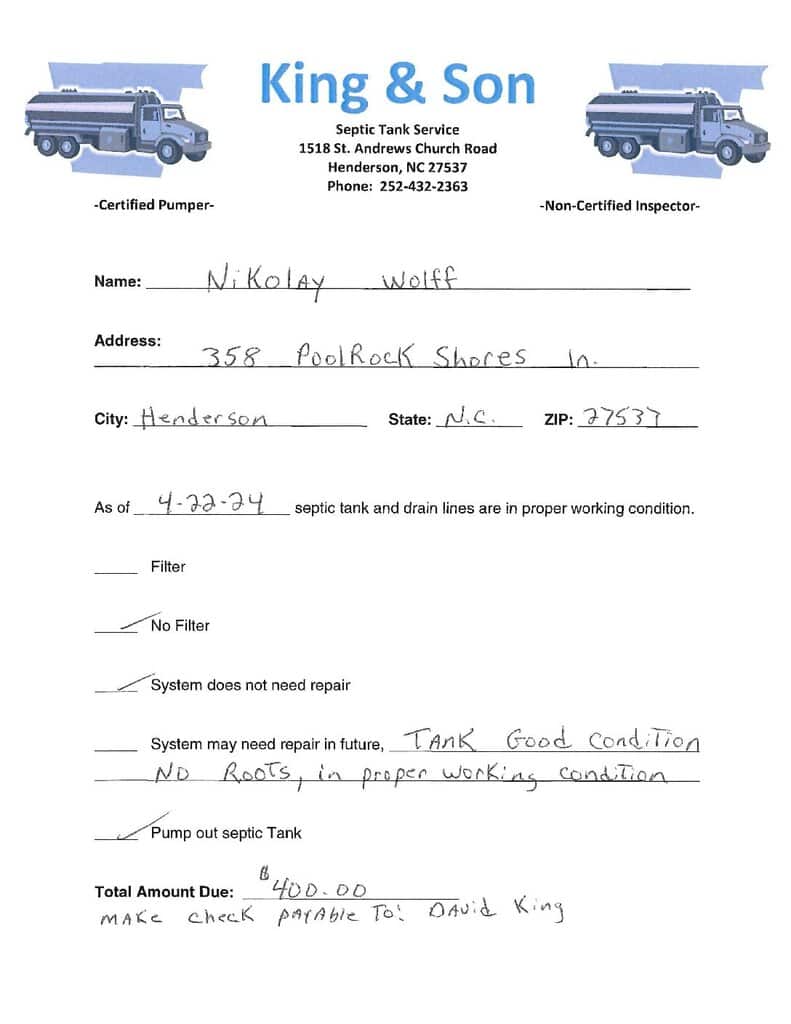 King & Son
Septic Tank Service
1518 St. Andrews Church Road
Henderson, NC 27537
Phone: 252-432-2363
-Certified Pumper-
-Non-Certified Inspector-
Name: Nikolay Wolff
Address:
358 PoolRock Shores ln.
City: Henderson State: N.C. ZIP: 27537
As of 4-22-24 septic tank and drain lines are in proper working condition.
Filter
✓ No Filter
✓ System does not need repair
System may need repair in future, TANK Good Condition
NO Roots, in proper working condition
✓ Pump out septic Tank
Total Amount Due: $400.00
MAKE check PAYABle To: DAvid King